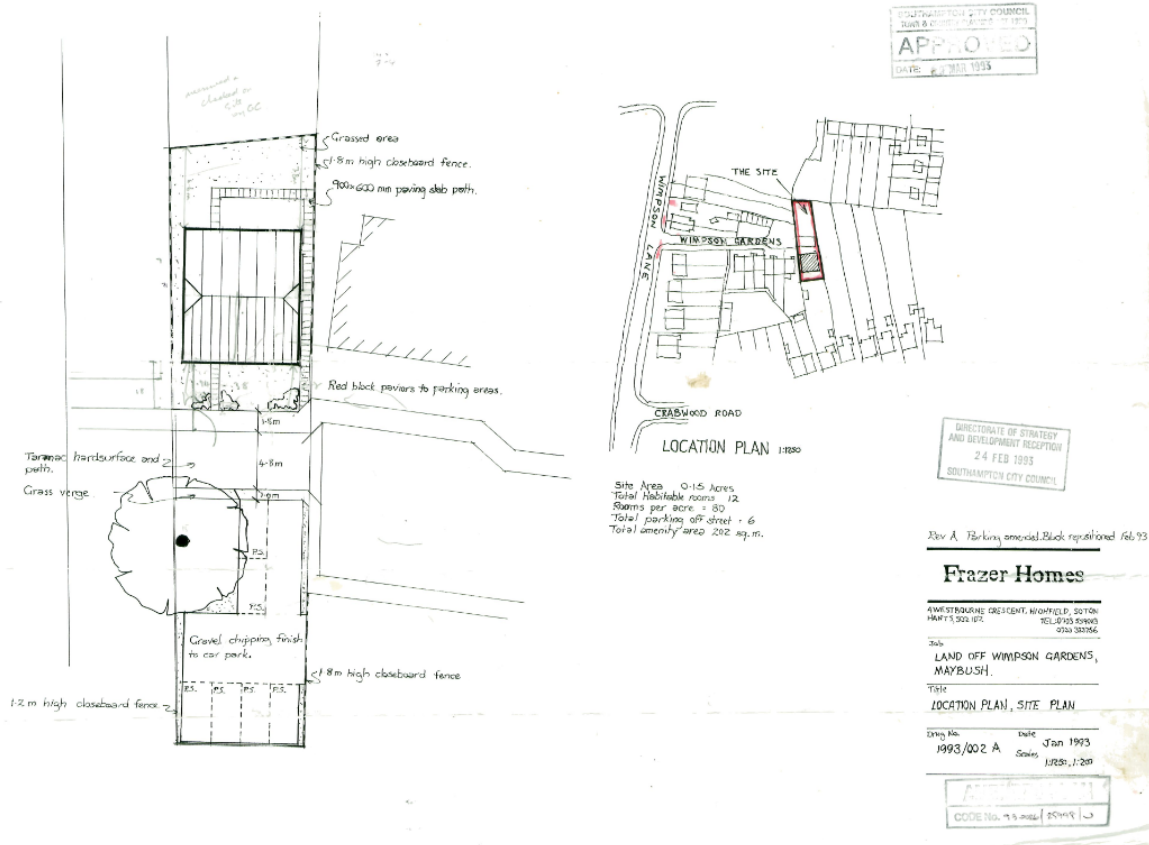 SOUTHAMPTON CITY COUNCIL
APPROVED
DATE: MAR 1993
measured &
checked on
Grassed area
1·8m high closeboard fence.
900×600 mm paving slab path.
Red block paviors to parking areas.
1·8m
4·8m
Tarmac hardsurface and
path.
Grass verge
P.S.
P.S.
Gravel chipping finish
to car park.
1·8m high closeboard fence
P.S. P.S. P.S. P.S.
1·2m high closeboard fence
THE SITE
WIMPSON LANE
WIMPSON GARDENS
CRABWOOD ROAD
LOCATION PLAN 1:1250
Site Area 0·15 Acres
Total Habitable rooms 12
Rooms per acre = 80
Total parking off street = 6
Total amenity area 202 sq.m.
DIRECTORATE OF STRATEGY
AND DEVELOPMENT RECEPTION
24 FEB 1993
SOUTHAMPTON CITY COUNCIL
Rev A Parking amended. Block repositioned Feb 93
Frazer Homes
4 WESTBOURNE CRESCENT, HIGHFIELD, SOTON
HANTS,
Job
LAND OFF WIMPSON GARDENS,
MAYBUSH.
Title
LOCATION PLAN, SITE PLAN
Drng No.
1993/002 A
Date
Jan 1993
Scales
1:1250, 1:200
CODE No.